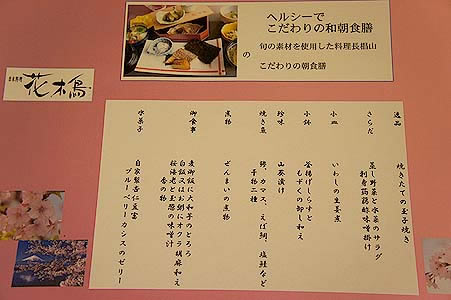 ヘルシーで
こだわりの和朝食膳
旬の素材を使用した料理長椙山
の
こだわりの朝食膳
日本料理
花木鳥
逸品　焼きたての玉子焼き
さらだ　蒸し野菜と水菜のサラダ
小皿　いわしの生姜煮
小鉢　釜揚げしらすと
もずくの卸し和え
珍味　山葵漬け
焼き魚　鯵、カマス、えぼ鯛、塩鮭など
干物二種
煮物　ぜんまいの煮物
御食事　麦御飯に大和芋のとろろ
白飯又はお粥にオクラ胡麻和え
桜海老と玉葱の味噌汁
香の物
水菓子　自家製杏仁豆富
ブルーベリー カシスのゼリー